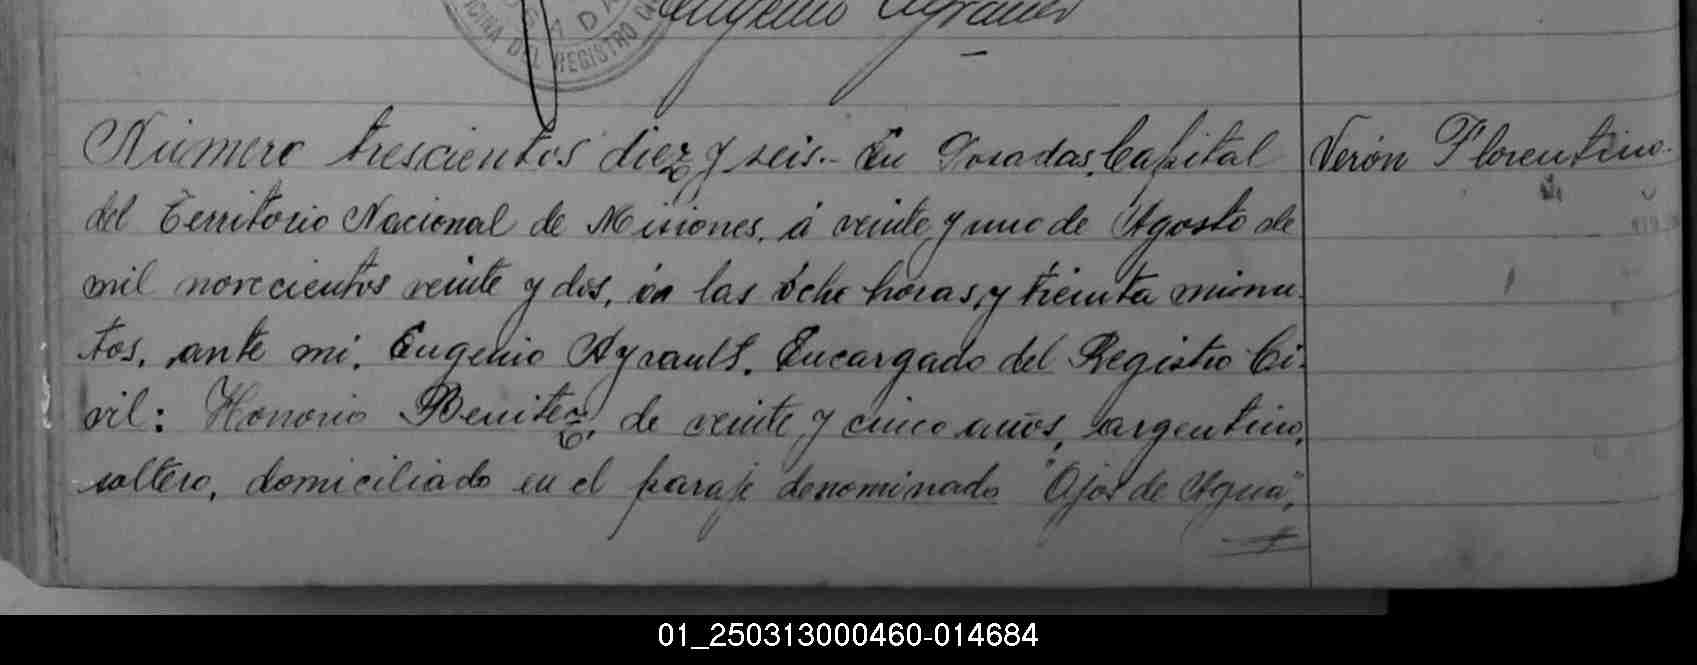 OFICINA DEL REGISTRO
Eugenio Ayrault
Número trescientos diez y seis.- En Posadas, Capital
Verón Florentino.
del Territorio Nacional de Misiones, á veinte y uno de Agosto de
mil novecientos veinte y dos, á las ocho horas, y treinta minu-
tos, ante mi, Eugenio Ayrault, Encargado del Registro Ci-
vil: Honorio Benitez, de veinte y cinco años, argentino,
soltero, domiciliado en el paraje denominado "Ojos de Agua",
01_250313000460-014684